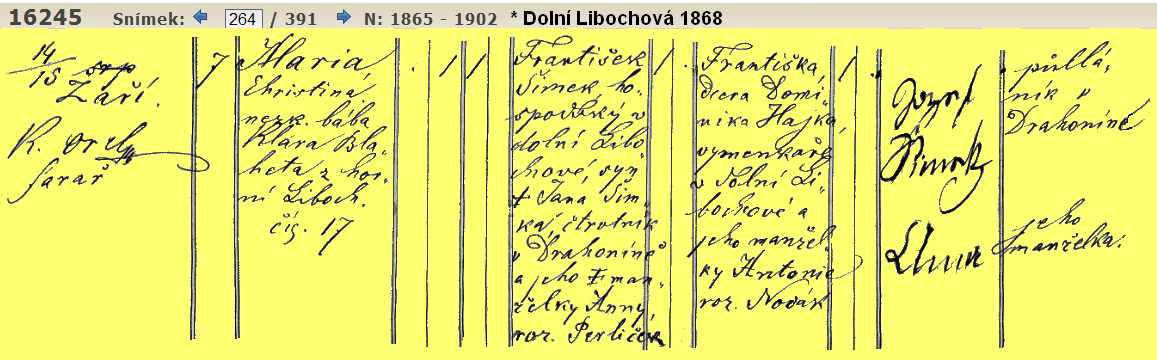 16245 Snímek: 264 / 391 N: 1865 - 1902 * Dolní Libochová 1868
14/15 srp
Září.
K. Orel
farař
7
Maria
Christina
nezk. bába
Klára Bla-
heta z hor-
ní Liboch.
čís. 17
1 1
František
Šimek, ho-
spodský v
dolní Libo
chové, syn
† Jana Šim-
ka, čtvrtník
v Drahoníně
a jeho † man-
želky Anny,
roz. Perliček
1
Františka,
dcera Domi-
nika Hajka,
vymenkaře
v Dolní Li-
bochové a
jeho manžel-
ky Antonie
roz. Novák
1
Jozef
Šimek
Anna
půllá-
ník v
Drahoníně
jeho
manželka.